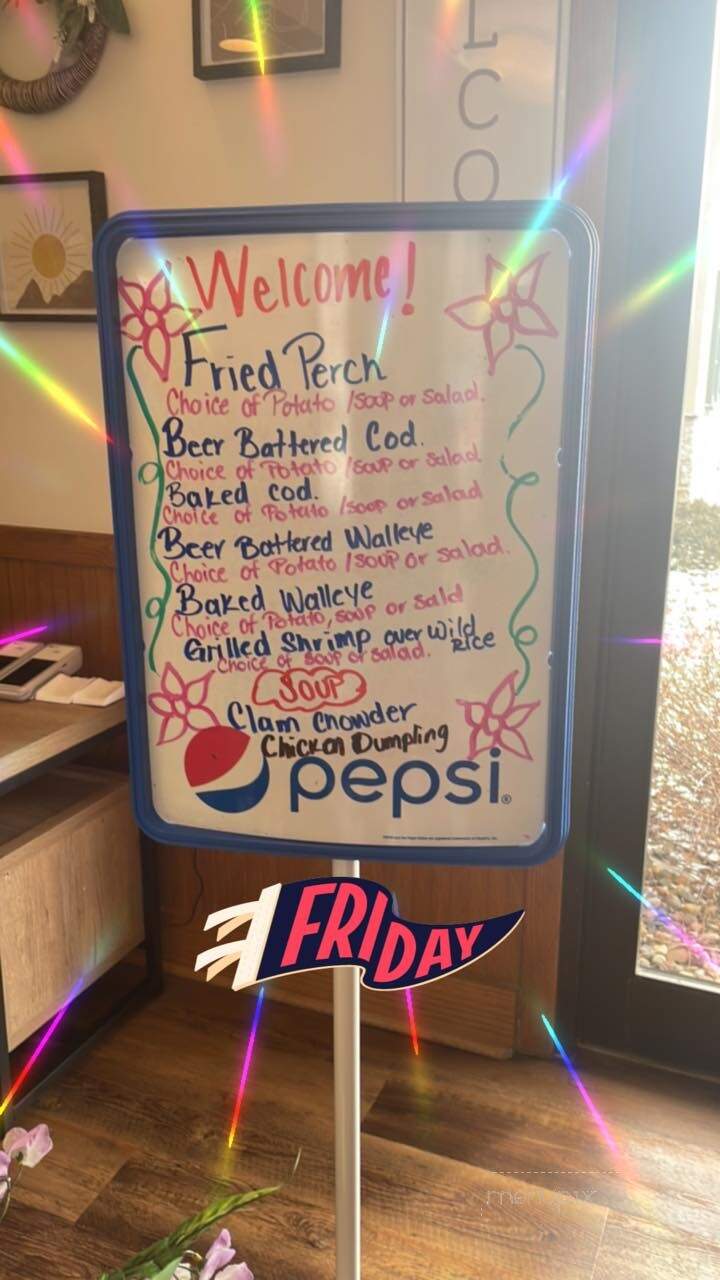 L
C
O
Welcome!
Fried Perch
Choice of Potato / Soup or Salad.
Beer Battered Cod.
Choice of Potato / Soup or Salad
Baked Cod.
Choice of Potato / Soup or Salad
Beer Battered Walleye
Choice of Potato / Soup or Salad.
Baked Walleye
Choice of Potato, Soup or Sald
Grilled Shrimp over Wild Rice
Choice of Soup or Salad.
Soup
Clam Chowder
Chicken Dumpling
pepsi®
FRIDAY
menupix